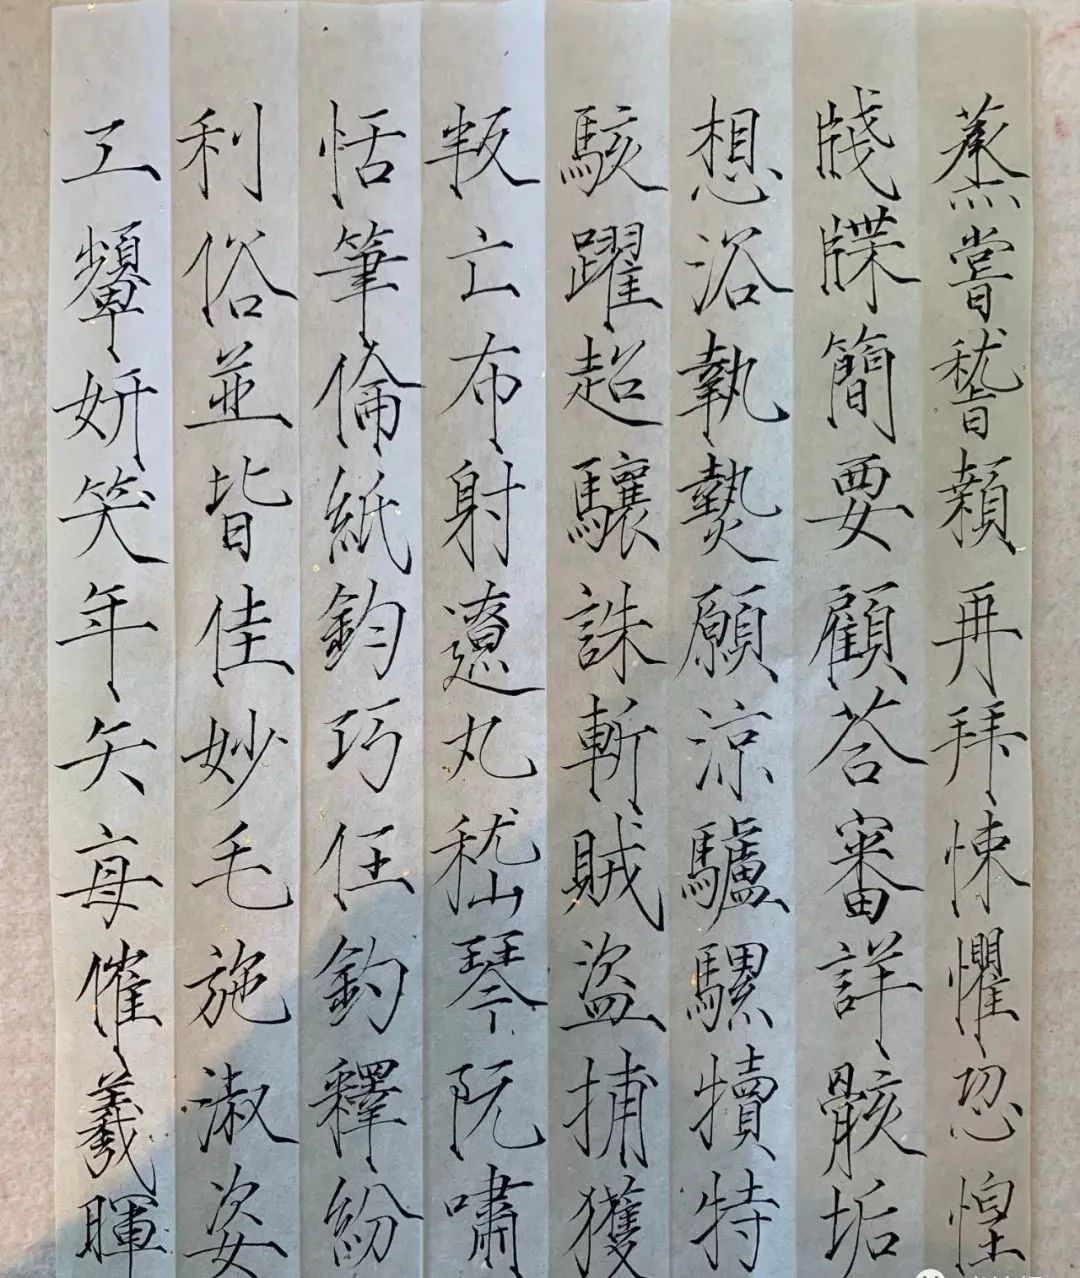 蒸嘗稽顙再拜悚懼恐惶
牋牒簡要顧答審詳骸垢
想浴執熱願涼驢騾犢特
駭躍超驤誅斬賊盜捕獲
叛亡布射遼丸嵇琴阮嘯
恬筆倫紙鈞巧任釣釋紛
利俗並皆佳妙毛施淑姿
工顰妍笑年矢每催羲暉